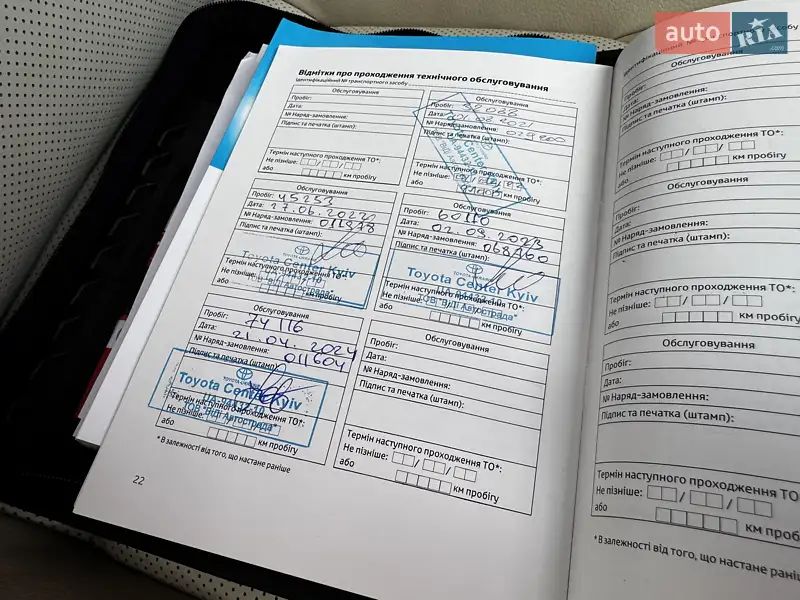 auto RIA .com
Відмітки про проходження технічного обслуговування
Ідентифікаційний № транспортного засобу
Обслуговування
Пробіг:
Дата:
№ Наряд-замовлення:
Підпис та печатка (штамп):
Термін наступного проходження ТО*:
Не пізніше: / /
або км пробігу
Обслуговування
Пробіг:
Дата:
№ Наряд-замовлення: 029200
Підпис та печатка (штамп):
Термін наступного проходження ТО*:
Не пізніше:
або км пробігу
Обслуговування
Пробіг: 45253
Дата: 27.06.2022
№ Наряд-замовлення: 011978
Підпис та печатка (штамп):
Toyota Center Kyiv
Термін наступного проходження ТО*:
Не пізніше:
ТОВ "ВіДі Автострада"
або км пробігу
Обслуговування
Пробіг: 60110
Дата: 02.09.2023
№ Наряд-замовлення: 068760
Підпис та печатка (штамп):
Toyota Center Kyiv
Термін наступного проходження ТО*:
Не пізніше:
ТОВ "ВіДі Автострада"
або км пробігу
Обслуговування
Пробіг: 74116
Дата: 21.04.2024
№ Наряд-замовлення: 011604
Підпис та печатка (штамп):
Toyota Center Kyiv
Термін наступного проходження ТО*:
Не пізніше:
ТОВ "ВіДі Автострада"
або км пробігу
Обслуговування
Пробіг:
Дата:
№ Наряд-замовлення:
Підпис та печатка (штамп):
Термін наступного проходження ТО*:
Не пізніше: / /
або км пробігу
* В залежності від того, що настане раніше
22
Обслуговування
Пробіг:
Дата:
№ Наряд-замовлення:
Підпис та печатка (штамп):
Термін наступного проходження ТО*:
Не пізніше: / /
або км пробігу
Обслуговування
Пробіг:
Дата:
№ Наряд-замовлення:
Підпис та печатка (штамп):
Термін наступного проходження ТО*:
Не пізніше: / /
або км пробігу
Обслуговування
Пробіг:
Дата:
№ Наряд-замовлення:
Підпис та печатка (штамп):
Термін наступного проходження ТО*:
Не пізніше: / /
або км пробігу
* В залежності від того, що настане раніше